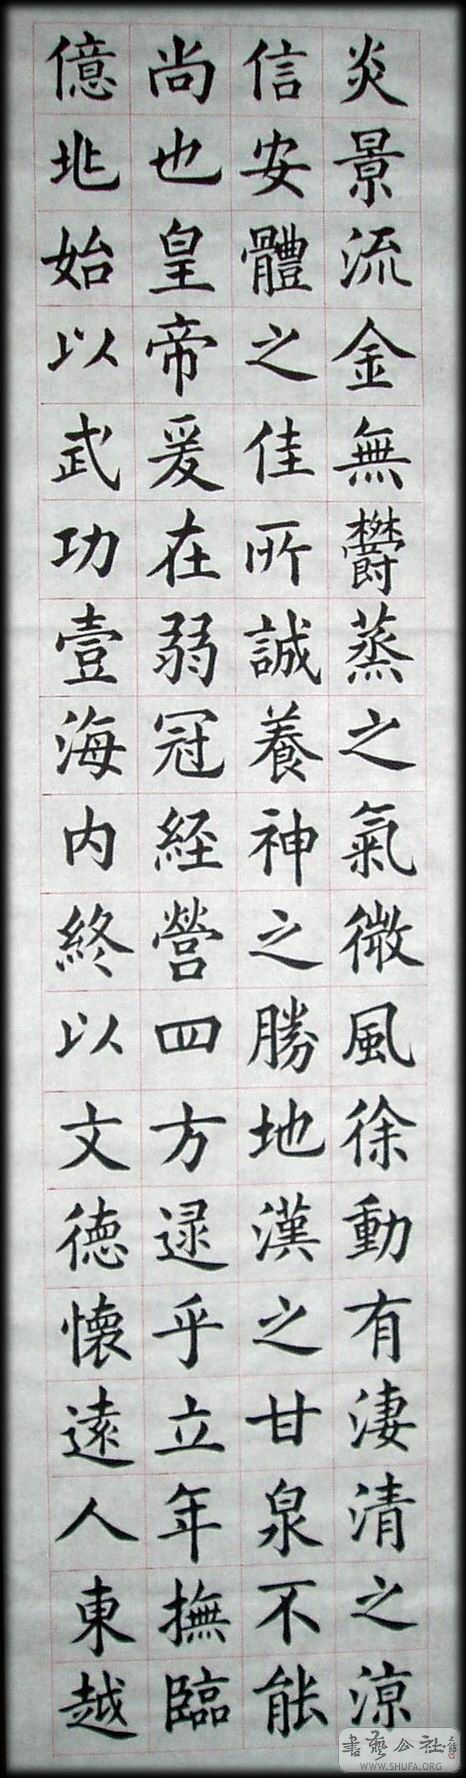 炎景流金無欝蒸之氣微風徐動有淒清之涼
信安體之佳所誠養神之勝地漢之甘泉不能
尚也皇帝爰在弱冠経營四方逯乎立年撫臨
億兆始以武功壹海内終以文徳懐遠人東越
書藝公社
WWW.SHUFA.ORG